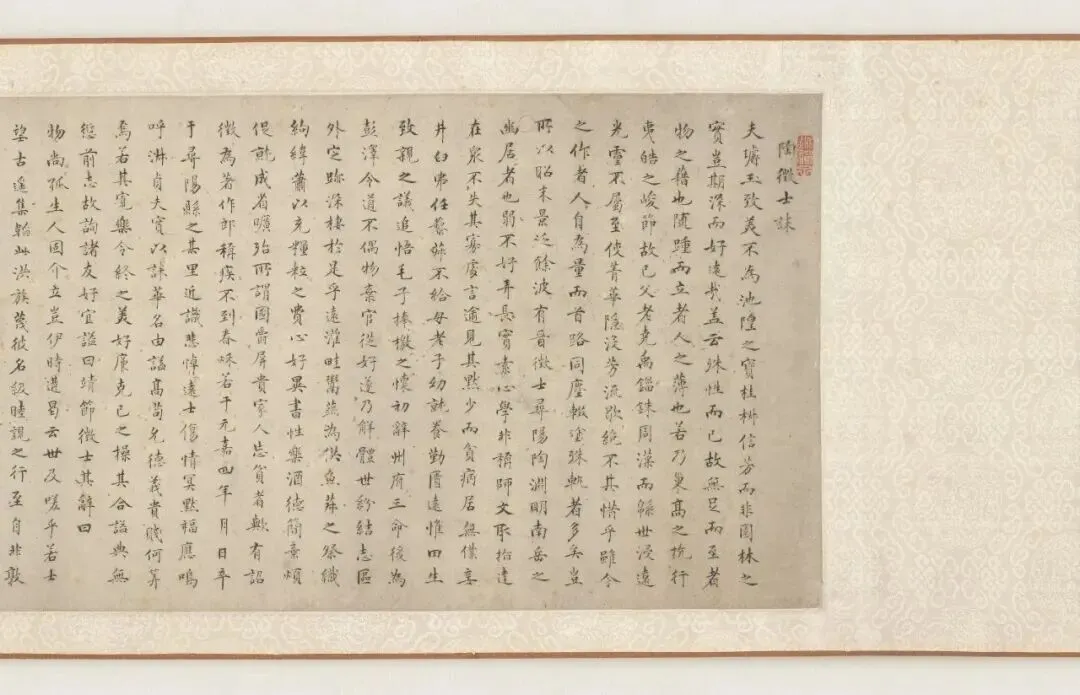 陶徵士誄
夫璿玉致美不為池隍之寶桂椒信芳而非園林之
實豈期深而好遠哉蓋云殊性而已故無足而至者
物之藉也隨踵而立者人之薄也若乃巢高之抗行
夷皓之峻節故已父老堯禹錙銖周漢而緜世浸遠
光靈不屬至使菁華隱沒芳流歇絕不其惜乎雖今
之作者人自為量而首路同塵輟塗殊軌者多矣豈
所以昭末景泛餘波有晉徵士尋陽陶淵明南岳之
幽居者也弱不好弄長實素心學非稱師文取指達
在眾不失其寡處言逾見其默少而貧病居無僕妾
井臼弗任藜菽不給母老子幼就養勤匱遠惟田生
致親之議追悟毛子捧檄之懷初辭州府三命後為
彭澤令道不偶物棄官從好遂乃解體世紛結志區
外定跡深棲於是乎遠灌畦鬻蔬為供魚菽之祭織
絇緯蕭以充糧粒之費心好異書性樂酒德簡棄煩
促就成省曠殆所謂國爵屏貴家人忘貧者歟有詔
徵為著作郎稱疾不到春秋若干元嘉四年月日卒
于尋陽縣之某里近識悲悼遠士傷情冥默福應嗚
呼淑貞夫實以誄華名由諡高苟允德義貴賤何筭
焉若其寬樂令終之美好廉克己之操其合諡典無
愆前志故詢諸友好宜諡曰靖節徵士其辭曰
物尚孤生人固介立豈伊時遘曷云世及嗟乎若士
望古遙集韜此洪族蔑彼名級睦親之行至自非敦